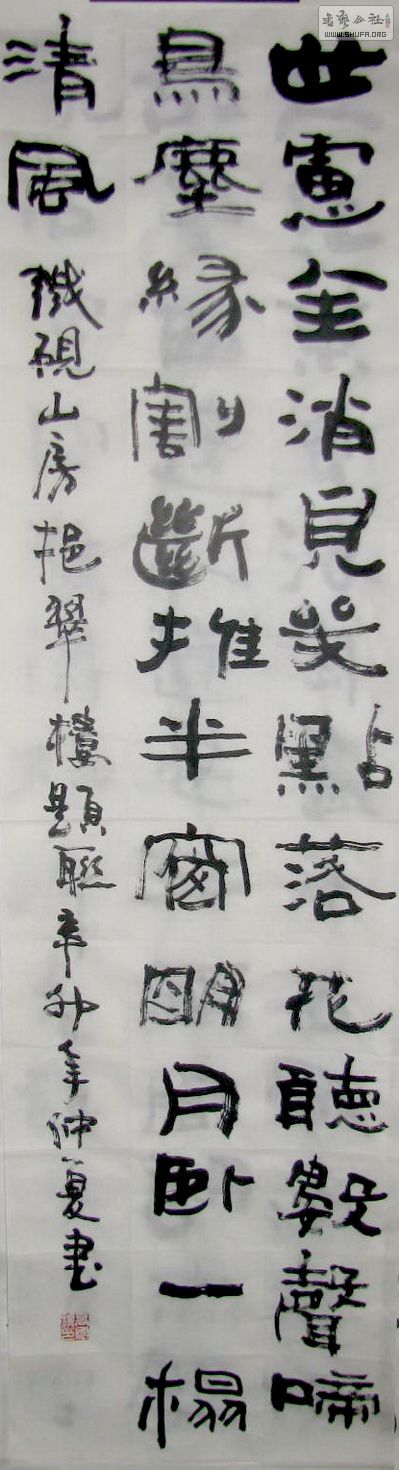 世慮全消見幾點落花聽數聲啼
鳥塵緣割斷推半窗明月卧一榻
清風 鐵硯山房挹翠樓題聯辛卯年仲夏書
書藝公社
WWW.SHUFA.ORG